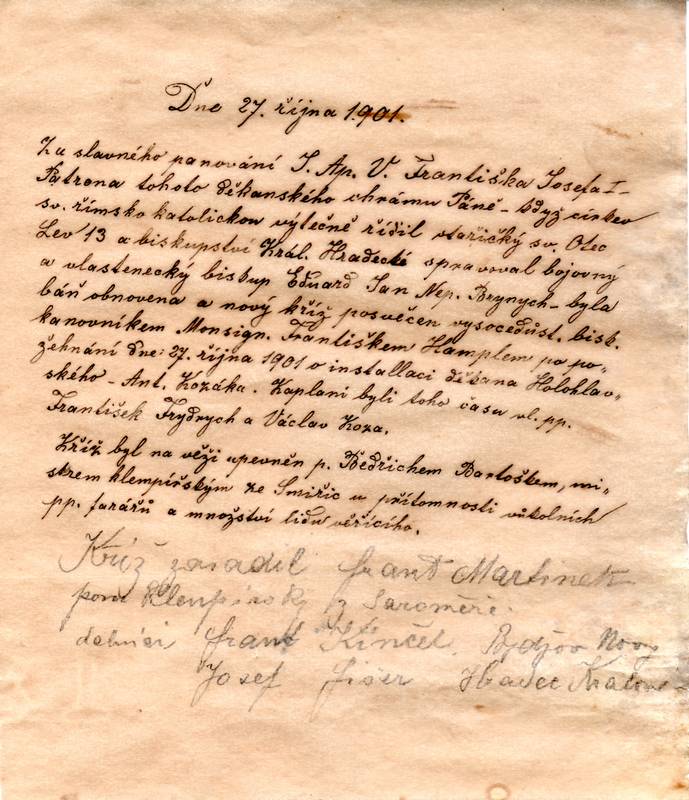 Dne 27. října 1901.
Za slavného panování J. Ap. V. Františka Josefa I-
Patrona tohoto děkanského chrámu Páně - když církev
sv. římsko katolickou výtečně řídil stařičký sv. Otec
Lev 13 a biskupství Král. Hradecké spravoval bojovný
a vlastenecký biskup Eduard Jan Nep. Brynych - byla
báň obnovena a nový kříž posvěcen vysocedůst. bisk.
kanovníkem Monsign. Františkem Hamplem po po-
žehnání dne: 27. října 1901 o installaci děkana Holohlav-
ského - Ant. Kozáka. Kaplani byli toho času vl. pp.
František Frydrych a Václav Koza.
Kříž byl na věži upevněn p. Bedřichem Bartoškem, mi-
strem klempířským ze Smiřic u přítomnosti vůkolních
pp. farářů a množství lidu věřícího.
Kříž zasadil frant Martinek
klempírský z Jaroměře.
dělníci frant Kinčel. Bydžov Nový
Josef fišer Hradec